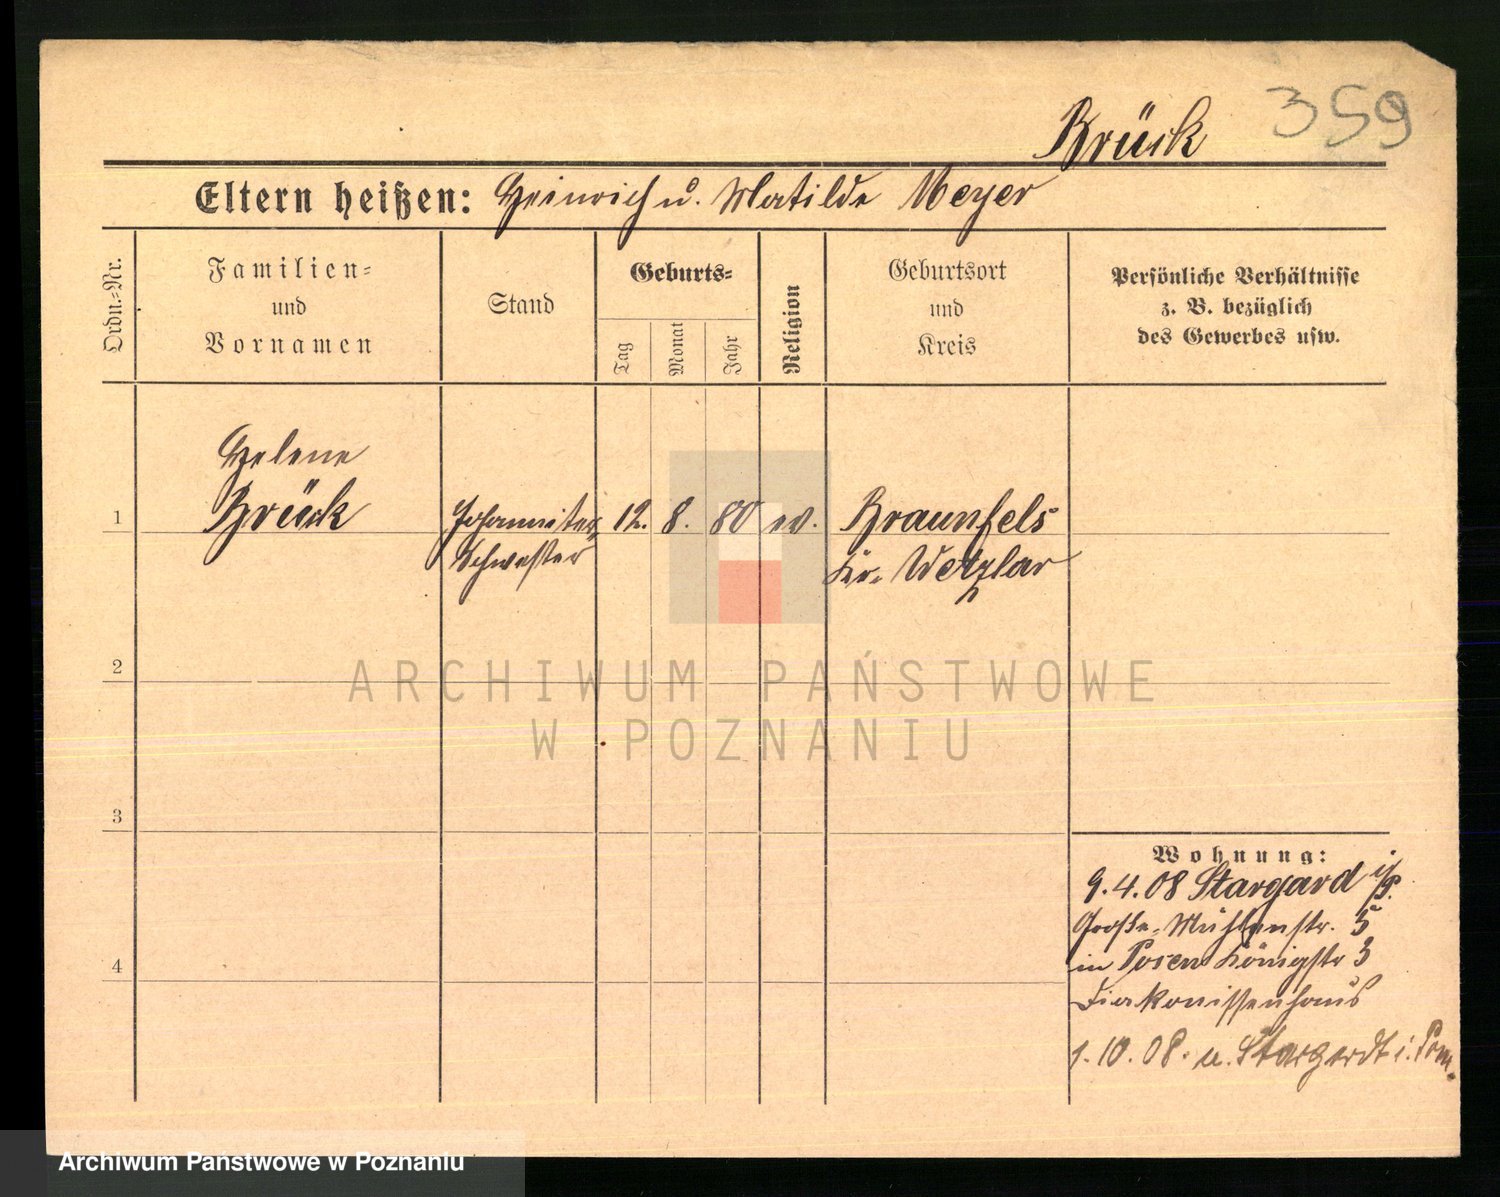 Brück 359
Eltern heißen: Heinrich u. Matilde Meyer
Ordn.-Nr.
Familien-
und
Vornamen
Stand
Geburts-
Tag
Monat
Jahr
Religion
Geburtsort
und
Kreis
Persönliche Verhältnisse
z. B. bezüglich
des Gewerbes usw.
Helene
1 Brück Johanniter 12. 8. 80 ev. Braunfels
Schwester Kr. Wetzlar
2
ARCHIWUM PAŃSTWOWE
W POZNANIU
3
Wohnung:
9.4.08 Stargard i/P.
Große-Mühlenstr. 5
in Posen Königstr 3
4
Diakonissenhaus
1.10.08. n. Stargardt i. Pom.
Archiwum Państwowe w Poznaniu